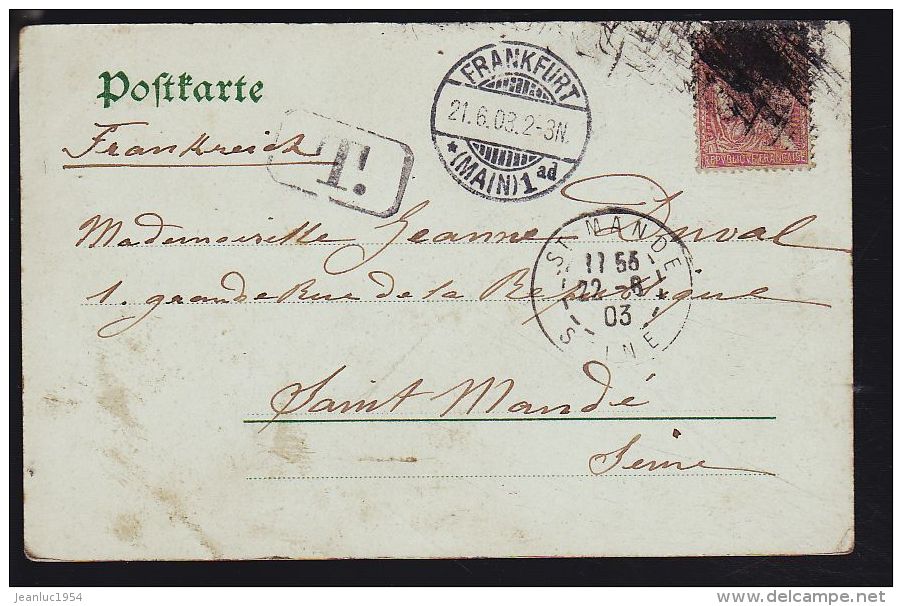 Postkarte
Frankreich
T.
FRANKFURT
21.6.03.2-3N.
* (MAIN) 1 ad
REPVBLIQVE FRANÇAISE
Mademoiselle Jeanne Duval
1. grande Rue de la République
ST MANDÉ
11 55
22 -6
03
SEINE
Saint Mandé
Seine
jeanluc1954
www.delcampe.net